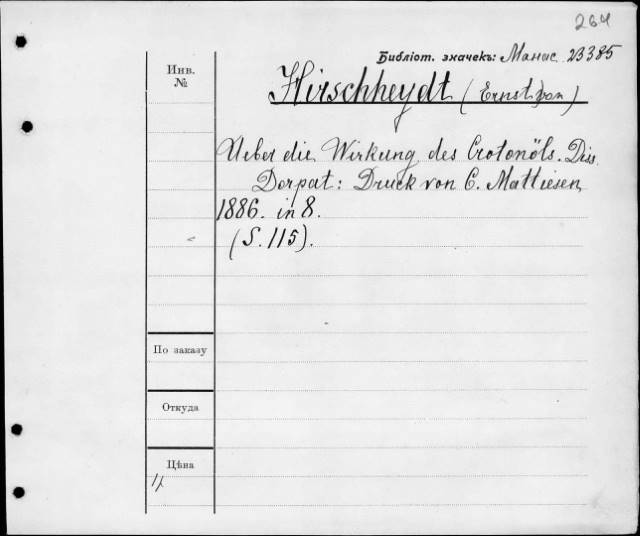 264
Библіот. значекъ: Манас. 23385
Инв.
№
Hirschheydt (Ernst von)
Ueber die Wirkung des Crotonöls. Diss.
Dorpat: Druck von C. Mattiesen,
1886. in 8.
(S. 115).
По заказу
Откуда
Цѣна